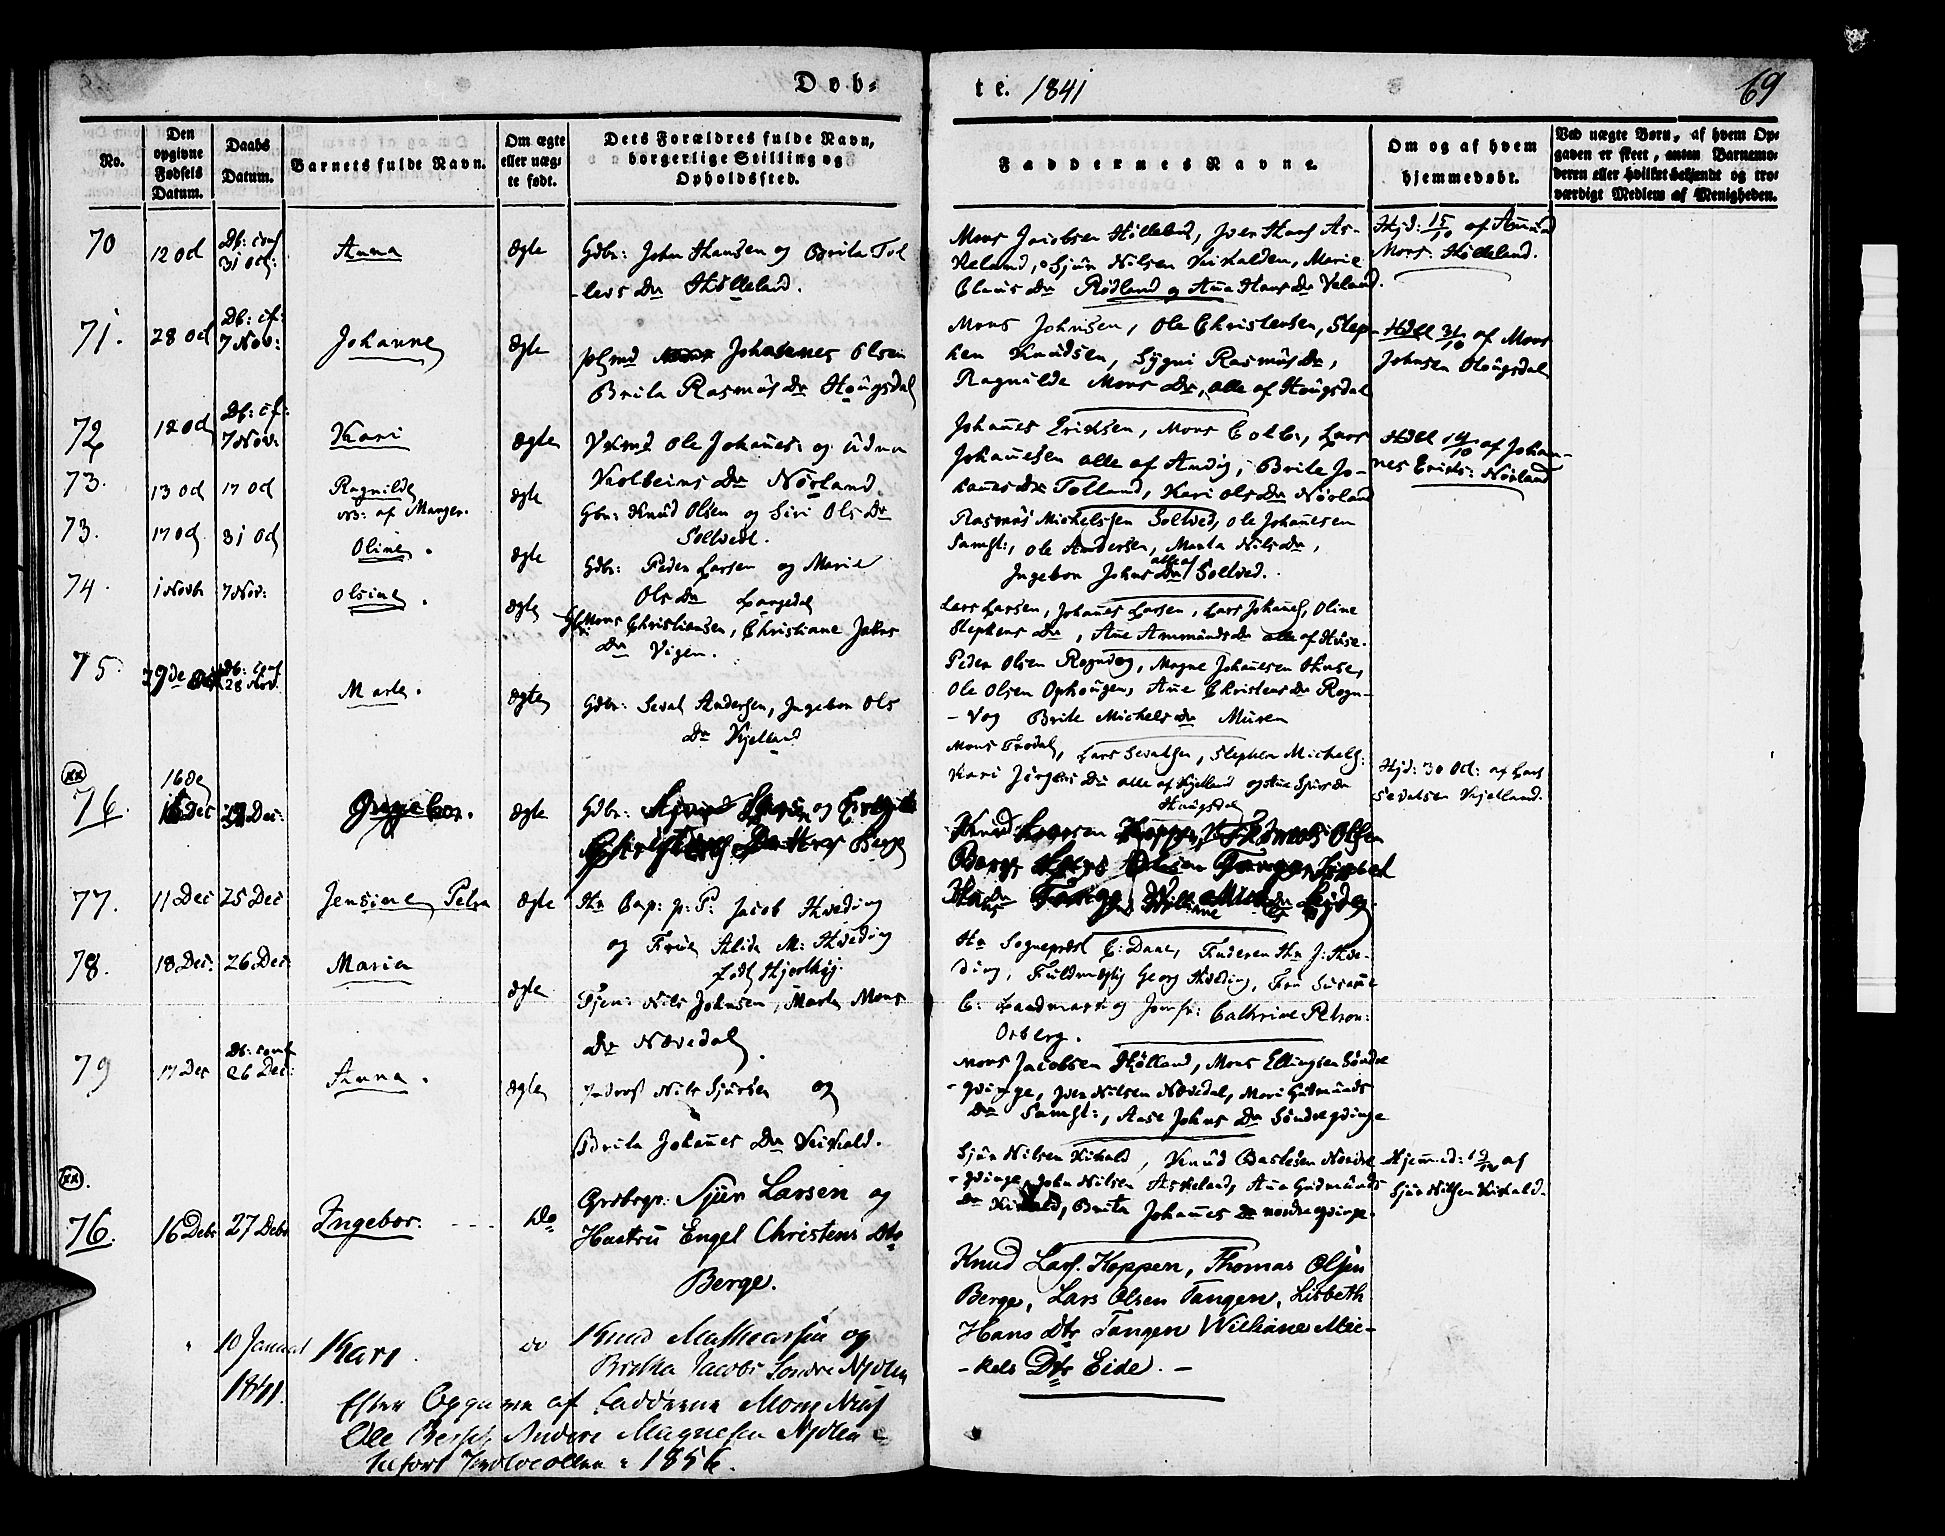 Døb-
te. 1841
69
No.
Den opgivne Fødsels Datum.
Daabs Datum.
Barnets fulde Navn.
Om ægte eller uægte født.
Dets Forældres fulde Navn, borgerlige Stilling og Opholdssted.
Faddernes Navne.
Om og af hvem hjemmedøbt.
Ved uægte Børn, af hvem Opgaven er skeet, enten Barnemoderen eller hvilket bekjendt og troværdigt Medlem af Menigheden.
70
12 Oct
Db: conf
31 Oct:
Anna
Ægte
Gdbr: John Hansen og Brita Tol
-levs Dr Hølleland.
Mons Jacobsen Hølleland, Iver Hans As-
keland, Sjur Nilsen Kirkalden, Marie
Claus Dr Rødland og Ane Hans Dr Veland.
Hjd: 15/10 af
Mons: Hølleland.
71.
28 Oct
Db: cf:
7 Nov:
Johanne
Ægte
Johannes Olsen
Brita Rasmus Dr Hougsdal
Mons Johnsen, Ole Christensen, Step-
hen Knudsen, Sygni Rasmus Dr,
Ragnilde Mons Dr, alle af Hougsdal
Hdbt 31/10 af Mons
Johnsen Hougsdal
72
12 Oct
Db: cf:
7 Nov:
Kari
Ægte
Ole Johanes: og Udna
Kolbeins Dr Nørland.
Johanes Eriksen, Mons Colb:, Lars
Johanesen alle af Andvig, Brite Jo-
hanes Dr Tolland, Kari Ols Dr Nørland
Hdbt 14/10 af Johan-
nes Eriks: Nørland
73.
13 Oct
17 Oct
Ragnilde
NB: af Manger.
Ægte
Gbr: Knud Olsen og Siri Ols Dr
Soltvedt.
Rasmus Michelssen Soltved, Ole Johanesen
Samst:, Ole Andersen, Marta Nils Dr,
Ingebor Johns Dr alle af Soltved.
73.
17 Oct
31 Oct
Oline.
Ægte
Gdbr: Peder Larsen og Marie
Ols Dr Langedal
Lars Larsen, Johanes Larsen, Lars Johanes, Oline
Stephens Dr, Ane Ammunds Dr alle af Huse.
74.
1 Novb
7 Nov:
Olsine.
Ægte
Mons Christiansen, Christiane Johns
Dr Vigen.
Peder Olsen Rognvog, Magne Johanesen Huse,
Ole Olsen Ophougen, Ane Christens Dr Rogn-
-vog Brite Michels Dr Muren
75.
29de Oct
Db: conf
28 Nov.
Marte.
Ægte
Gdbr: Sevat Andersen, Ingebor Ols
Dr Kjelland
Mons Frodal, Lars Sevatsen, Stephen Michels:
Kari Jørgens Dr alle af Kjelland og Ane Sjurs Dr
Hougsdal
Hjd: 30 Oct: af Lars
Sevatsen Kjelland.
xx
76.
16de
16 Dec
Dec:
Ingebor.
Ægte
Gdbr:
Berge
Knud Larsen Koppen, Thomas Olsen
Berge Lars Olsen Tangen, Lisbet
Hans Dr Tangen Williane Mickels Dr Eide.
77.
11 Dec
25 Dec
Jensine Petra
Ægte
Hr Cap: p: P: Jacob Hveding
og Frue Alida M: Hveding
født Hjorthøj.
Hr Sognepræst C: Daae, Faderen Hr J: Hve-
ding, Fuldmægtig Georg Hveding, Fru Susanne
C: Landmark og Jomfr: Cathrine Petron:
Orberg.
78.
18 Dec:
26 Dec
Maria
Ægte
Tjen: Nils Johnsen, Marte Mons
Dr Nævedal.
Mons Jacobsen Hølland, Mons Ellingsen Søndre
-qvinge, Iver Nilsen Nævedal, Mari Gudmunds
Dr Samst:, Aase Johns Dr Søndreqvinge
79
17 Dec
Db: conf
26 Dec:
Anna.
Ægte
Nils Sjursen og
Brita Johanes Dr Kirkald.
Sjur Nilsen Kirkald, Knud Nordre
-qvinge, John Nilsen Askeland, Ane Gudmunds
Dr Kirkald, Brita Johanes Dr nordreqvinge.
Hjemmed: af
Sjur Nilsen Kirkald.
xx.
76.
16 Debr
27 Debr
Ingebor.
Do
Grdbrgr. Sjur Larsen og
Hustru Engel Christens Dtr
Berge.
Knud Lars. Koppen, Thomas Olsen
Berge, Lars Olsen Tangen, Lisbeth
Hans Dtr Tangen Williane Mic-
-kels Dtr Eide. -
"
10 Januar
1841.
Kari.
do
Knud Mathiassen og
Britha Jacobs Søndre
Efter Opgivne af Fadderne Mons
Ole Anders Magnesen
Indført 1856.